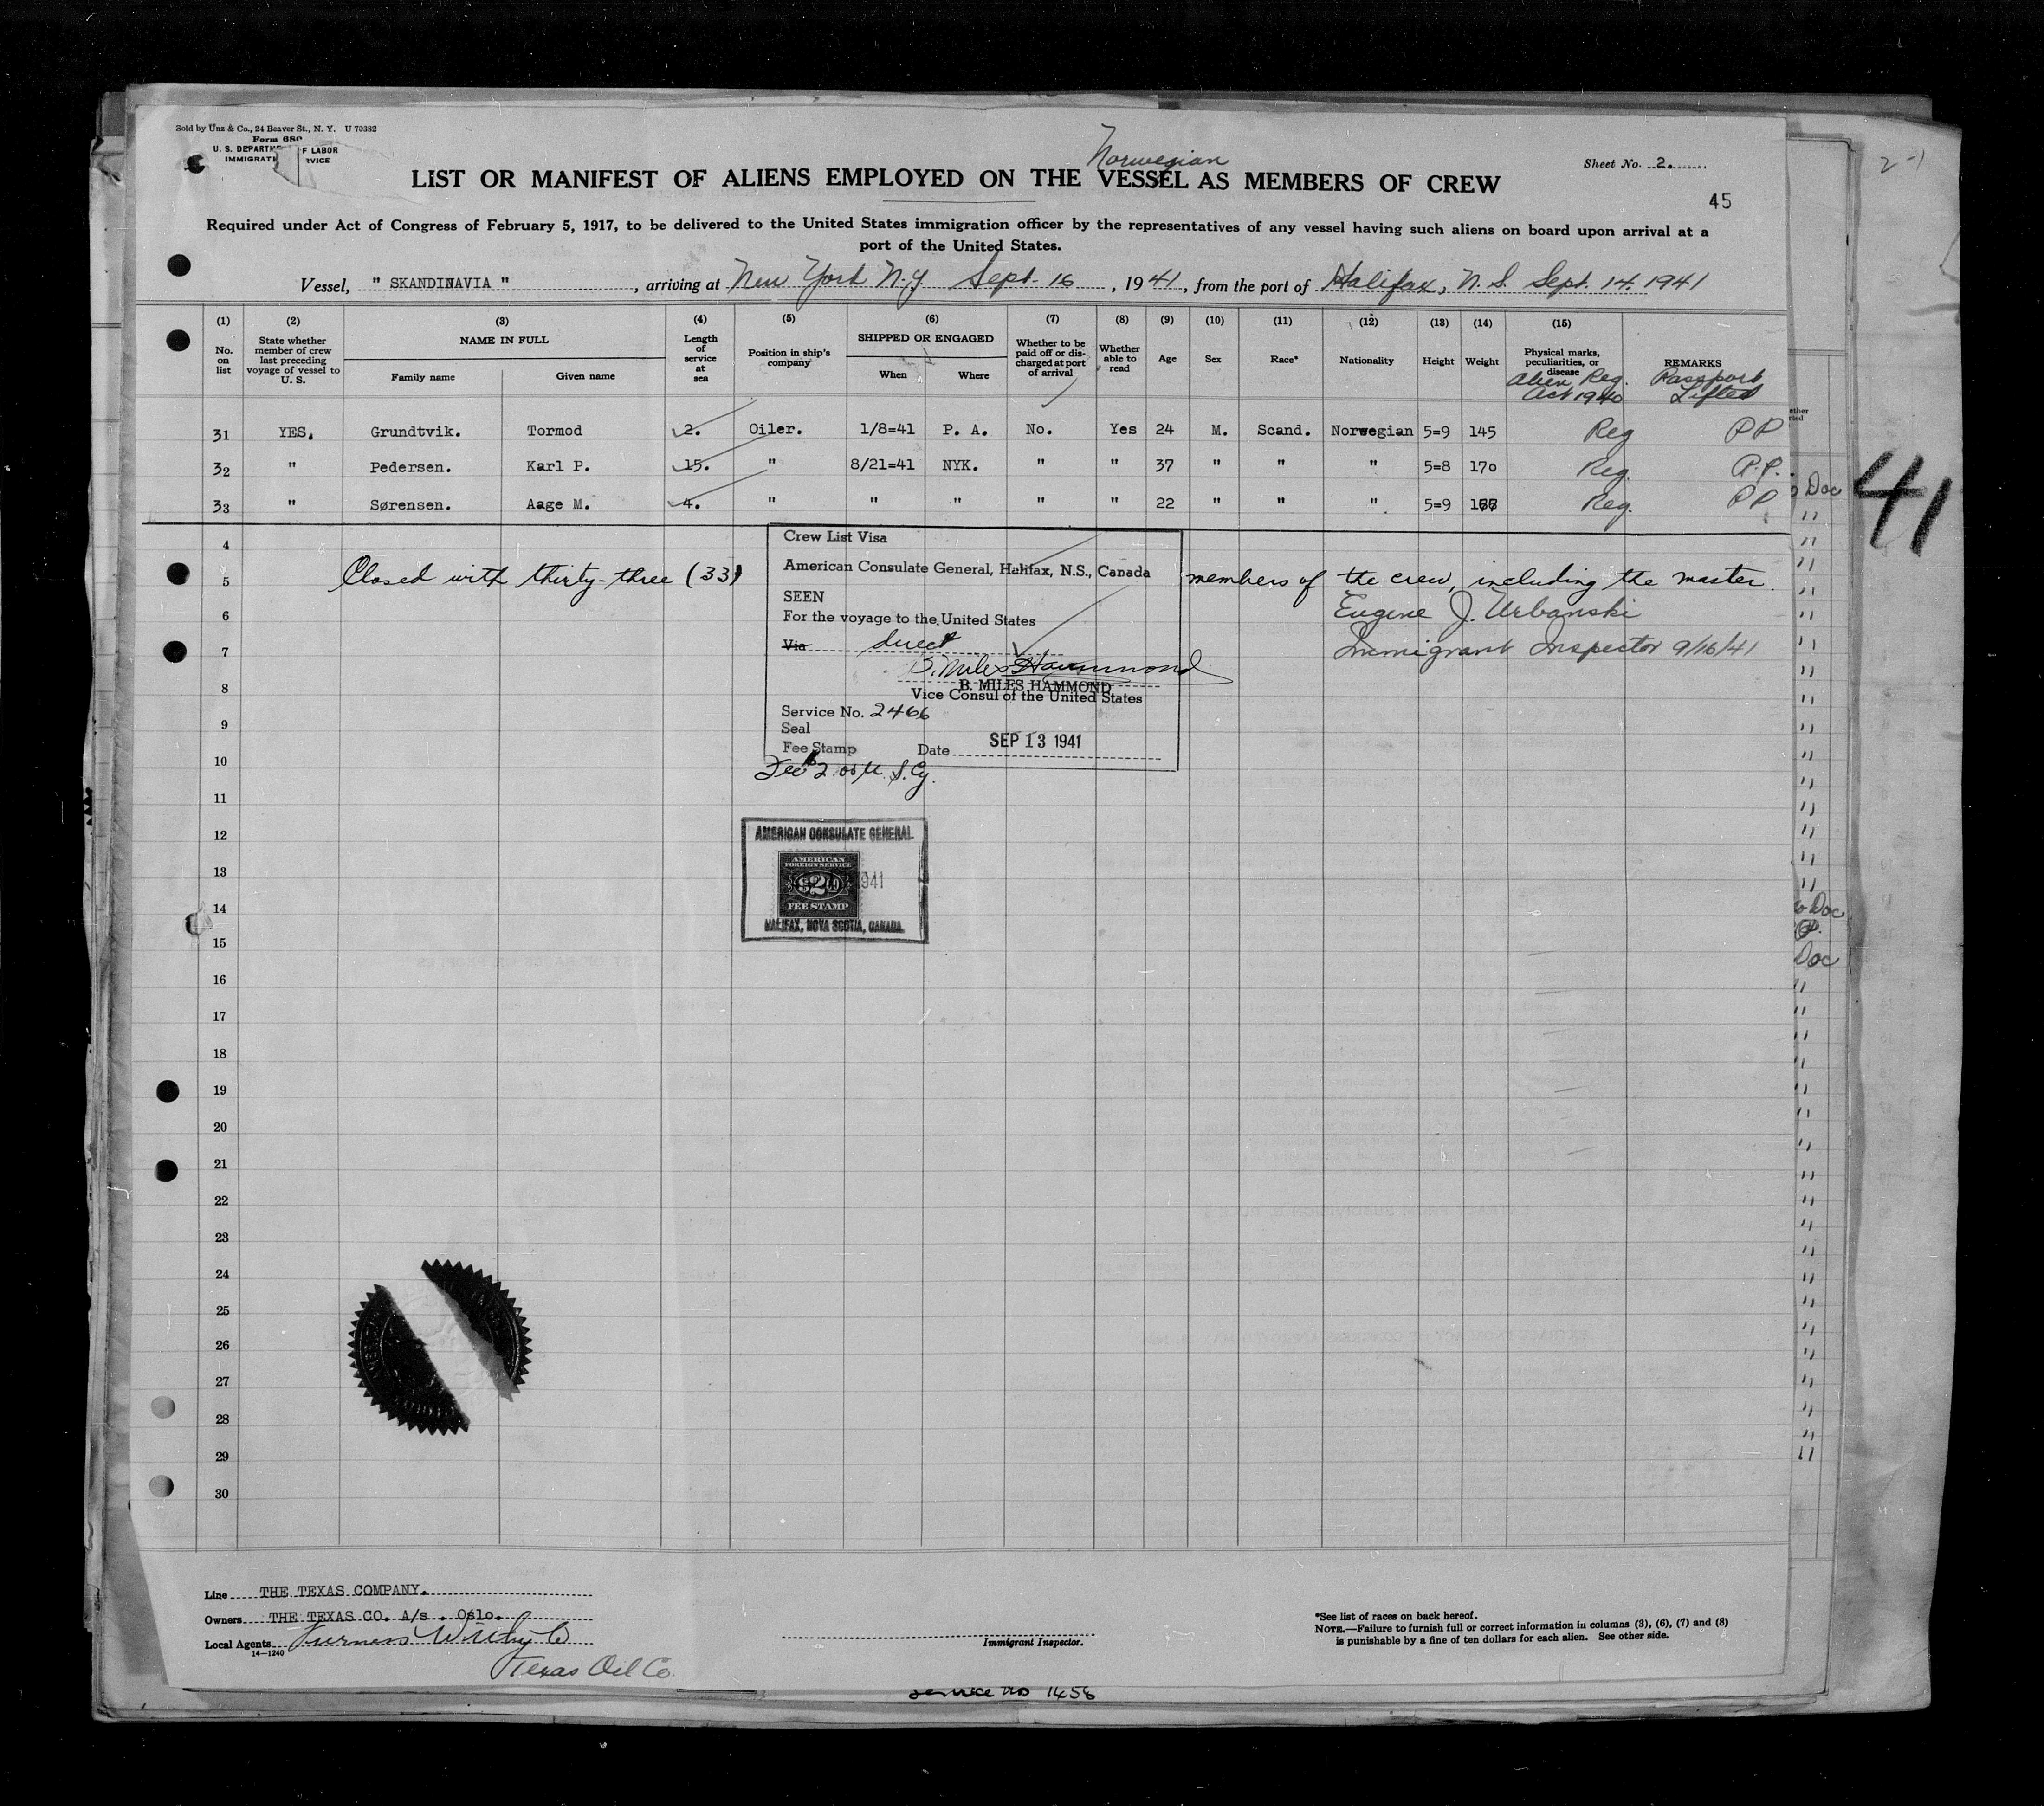 Sold by Unz & Co., 24 Beaver St., N. Y. U 70382
Form 680
U. S. DEPARTME F LABOR
IMMIGRATI RVICE
Norwegian
Sheet No. 2.
2-1
LIST OR MANIFEST OF ALIENS EMPLOYED ON THE VESSEL AS MEMBERS OF CREW
45
Required under Act of Congress of February 5, 1917, to be delivered to the United States immigration officer by the representatives of any vessel having such aliens on board upon arrival at a
port of the United States.
Vessel, " SKANDINAVIA ", arriving at New York N.Y. Sept. 16, 1941, from the port of Halifax, N.S. Sept. 14. 1941
(1) (2) (3) (4) (5) (6) (7) (8) (9) (10) (11) (12) (13) (14) (15)
No. on list
State whether member of crew last preceding voyage of vessel to U. S.
NAME IN FULL
Family name
Given name
Length of service at sea
Position in ship's company
SHIPPED OR ENGAGED
When
Where
Whether to be paid off or discharged at port of arrival
Whether able to read
Age
Sex
Race*
Nationality
Height
Weight
Physical marks, peculiarities, or disease
Alien Reg. Act 1940
REMARKS
Passport Lifted
31 YES. Grundtvik. Tormod 2. Oiler. 1/8=41 P. A. No. Yes 24 M. Scand. Norwegian 5=9 145 Reg PP
32 " Pedersen. Karl P. 15. " 8/21=41 NYK. " " 37 " " " 5=8 170 Reg. P.P.
33 " Sørensen. Aage M. 4. " " " " " 22 " " " 5=9 Reg. PP
Doc
41
4
Crew List Visa
American Consulate General, Halifax, N.S., Canada
5 Closed with thirty-three (33) members of the crew, including the master.
SEEN
6 For the voyage to the United States
Eugene J. Urbanski
7 Via direct
Immigrant Inspector 9/16/41
B. Miles Hammond
8 B. MILES HAMMOND
Vice Consul of the United States
Service No. 2466
9 Seal
Fee Stamp Date SEP 13 1941
10 Fee $2.00 U.S.Cy.
11
12 AMERICAN CONSULATE GENERAL
AMERICAN
FOREIGN SERVICE
13 $2.00 1941
FEE STAMP
14 HALIFAX, NOVA SCOTIA, CANADA.
Doc
15
Doc
16
17
18
19
20
21
22
23
24
25
26
27
28
29
30
Line THE TEXAS COMPANY.
Owners THE TEXAS CO. A/s . Oslo.
Local Agents Furness Withy Co
14—1240
Texas Oil Co.
Immigrant Inspector.
*See list of races on back hereof.
NOTE.—Failure to furnish full or correct information in columns (3), (6), (7) and (8)
is punishable by a fine of ten dollars for each alien. See other side.
Service No 1456